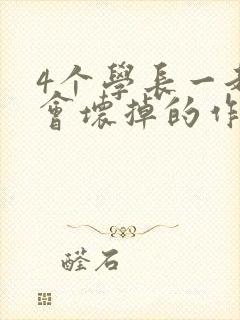 4个學長一
會壞掉的作
醛石